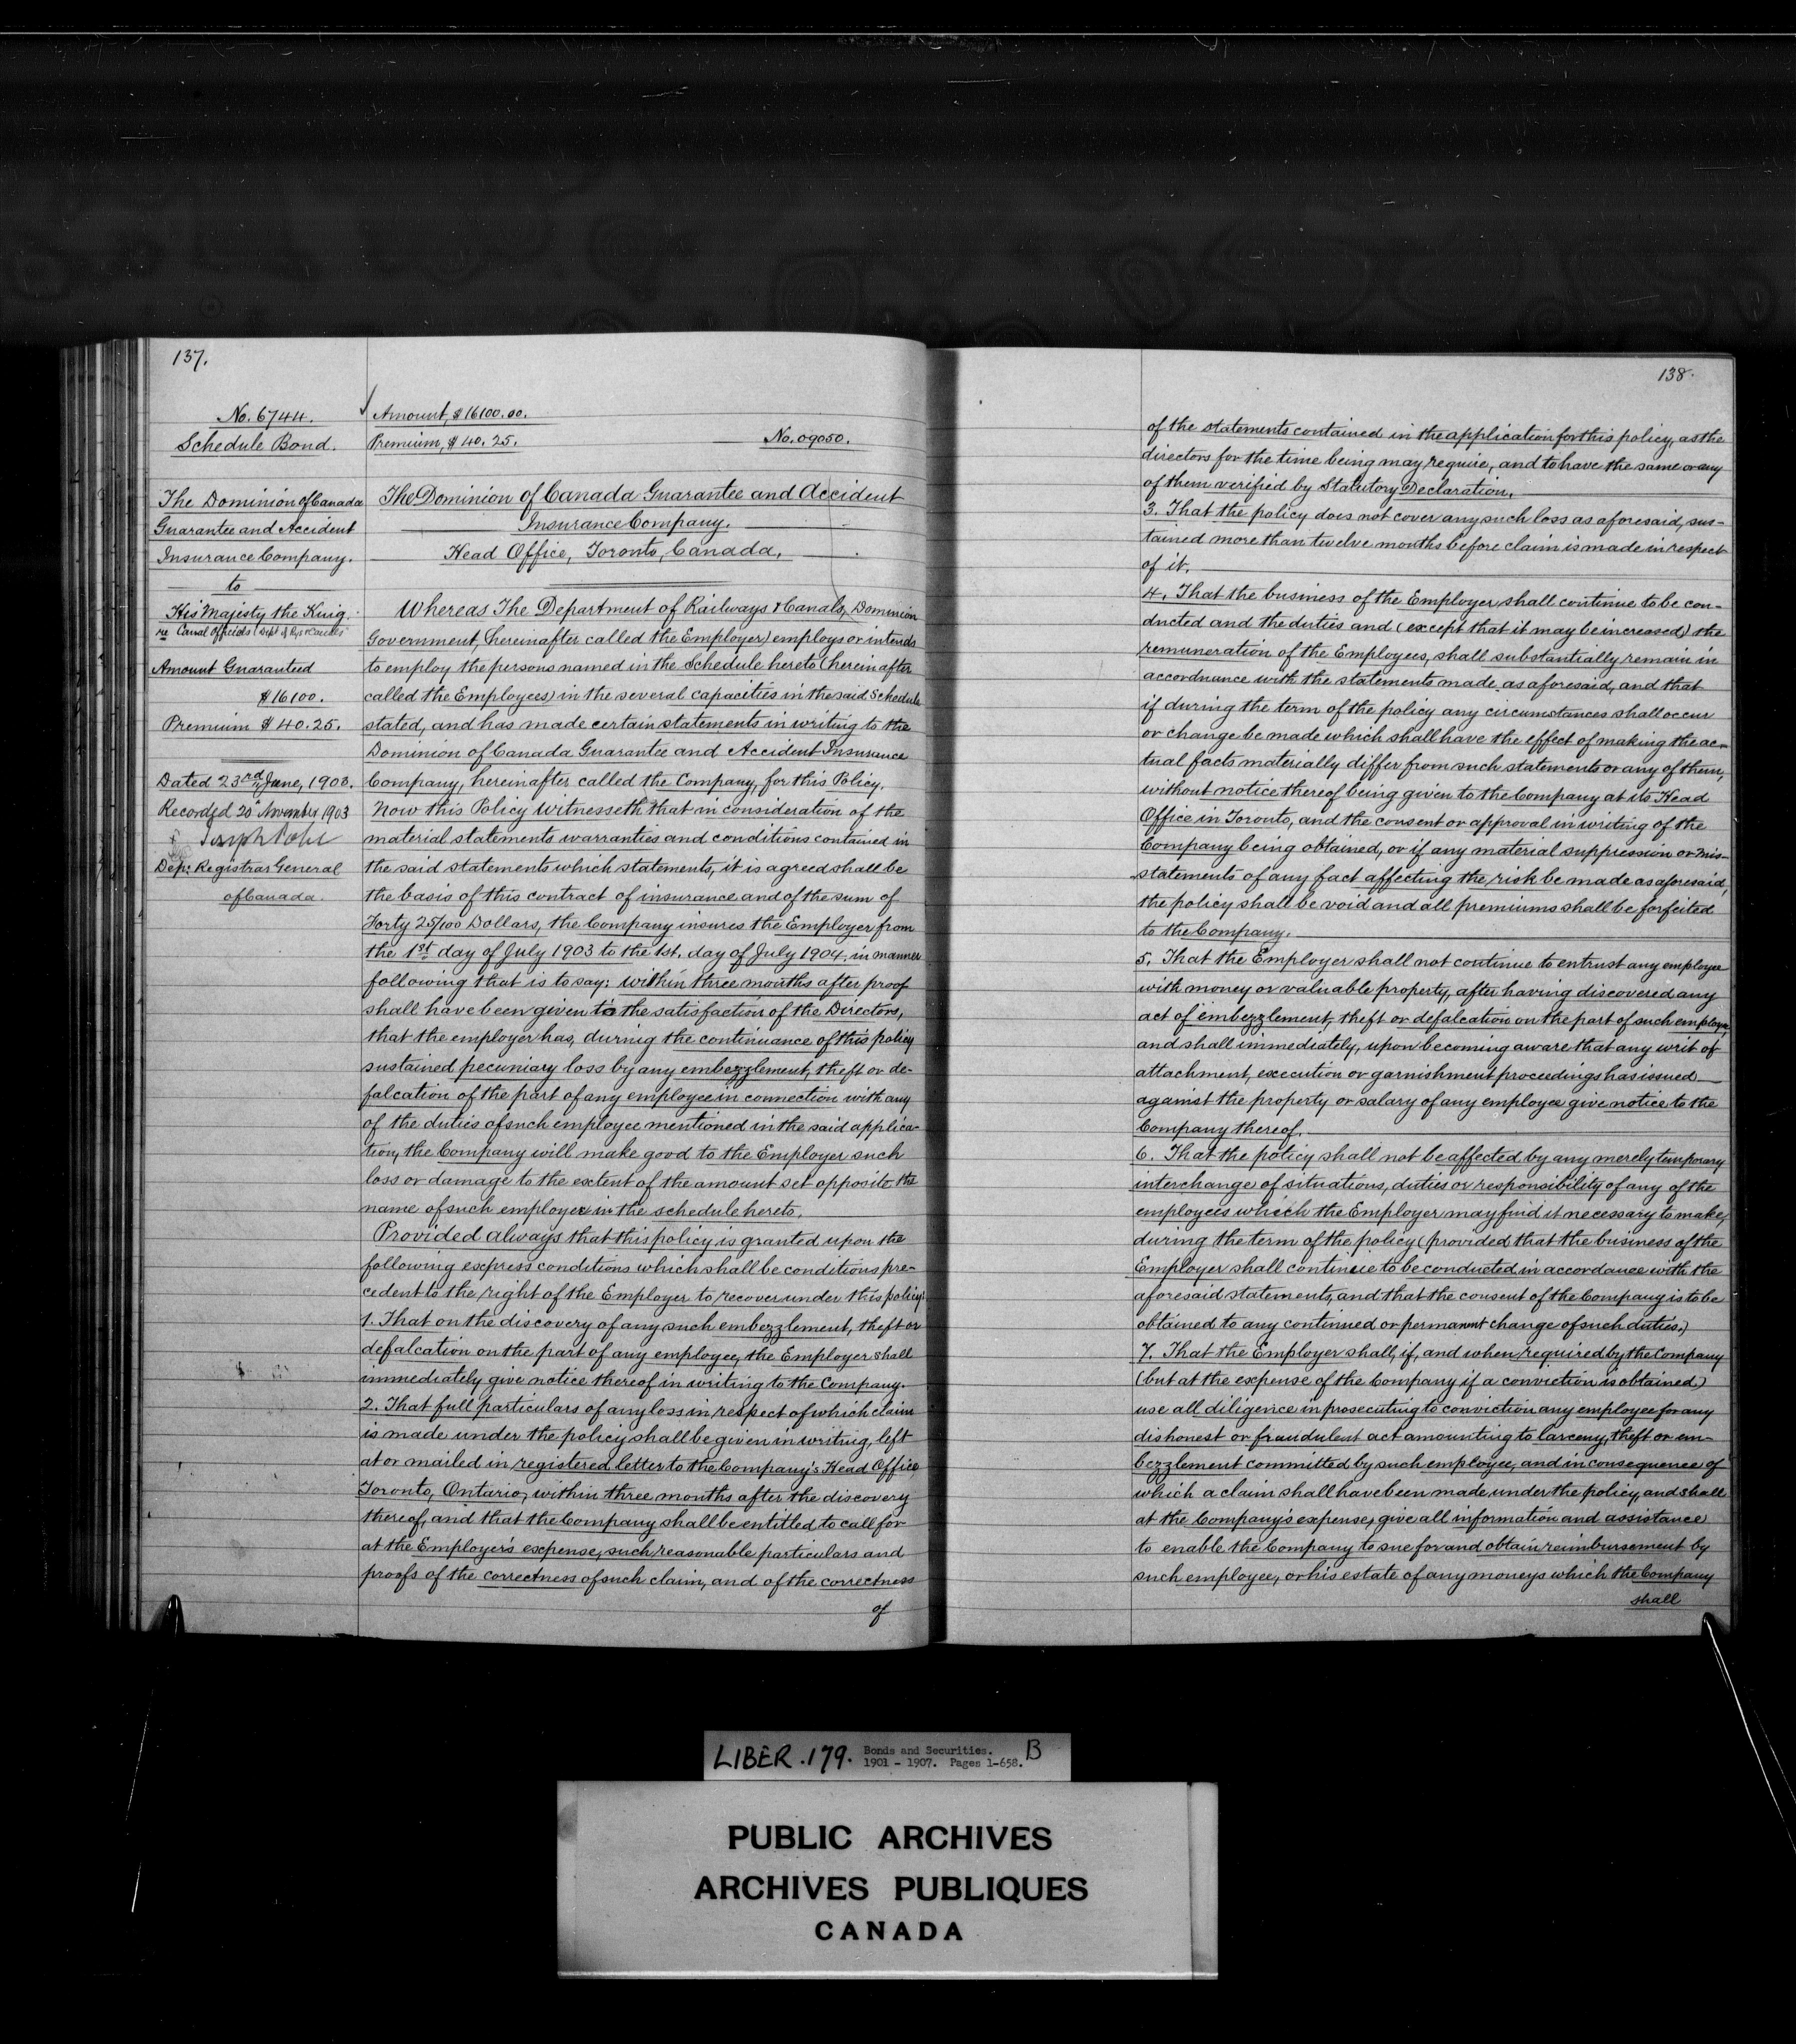 137.
No. 6744.
Schedule Bond.
The Dominion of Canada
Guarantee and Accident
Insurance Company.
to
His Majesty the King.
re Canal Officials (Dept of Rys & Canals)
Amount Guaranteed
$16100.
Premium $40.25.
Dated 23rd June, 1903.
Recorded 20th November 1903
Joseph Pope
Dep: Registrar General
of Canada.
Amount, $16100.00.
Premium, $40.25. No. 09050.
The Dominion of Canada Guarantee and Accident
Insurance Company.
Head Office, Toronto, Canada.
Whereas The Department of Railways & Canals, Dominion
Government, (hereinafter called the Employer) employs or intends
to employ the persons named in the Schedule hereto (hereinafter
called the Employees) in the several capacities in the said Schedule
stated, and has made certain statements in writing to the
Dominion of Canada Guarantee and Accident Insurance
Company, hereinafter called the Company, for this Policy.
Now this Policy witnesseth that in consideration of the
material statements warranties and conditions contained in
the said statements which statements, it is agreed shall be
the basis of this contract of insurance and of the sum of
Forty 25/100 Dollars, the Company insures the Employer from
the 1st day of July 1903 to the 1st. day of July 1904, in manner
following that is to say: within three months after proof
shall have been given to the satisfaction of the Directors,
that the employer has, during the continuance of this policy
sustained pecuniary loss by any embezzlement, theft or de-
falcation of the part of any employee in connection with any
of the duties of such employee mentioned in the said applica-
tion, the Company will make good to the Employer such
loss or damage to the extent of the amount set opposite the
name of such employee in the schedule hereto.
Provided always that this policy is granted upon the
following express conditions which shall be conditions pre-
cedent to the right of the Employer to recover under this policy:
1. That on the discovery of any such embezzlement, theft or
defalcation on the part of any employee, the Employer shall
immediately give notice thereof in writing to the Company.
2. That full particulars of any loss in respect of which claim
is made under the policy shall be given in writing, left
at or mailed in registered letter to the Company's Head Office,
Toronto, Ontario, within three months after the discovery
thereof, and that the Company shall be entitled to call for
at the Employer's expense, such reasonable particulars and
proofs of the correctness of such claim, and of the correctness
of
138.
of the statements contained in the application for this policy, as the
directors for the time being may require, and to have the same or any
of them verified by Statutory Declaration.
3. That the policy does not cover any such loss as aforesaid, sus-
tained more than twelve months before claim is made in respect
of it.
4. That the business of the Employer, shall continue to be con-
ducted and the duties and (except that it may be increased) the
remuneration of the Employees, shall substantially remain in
accordnance with the statements made as aforesaid, and that
if during the term of the policy any circumstances shall occur
or change be made which shall have the effect of making the ac-
tual facts materially differ from such statements or any of them,
without notice thereof being given to the Company at its Head
Office in Toronto, and the consent or approval in writing of the
Company being obtained, or if any material suppression or mis-
statements of any fact affecting the risk be made as aforesaid,
the policy shall be void and all premiums shall be forfeited
to the Company.
5. That the Employer shall not continue to entrust any employee
with money or valuable property, after having discovered any
act of embezzlement, theft or defalcation on the part of such employee,
and shall immediately, upon becoming aware that any writ of
attachment, execution or garnishment proceedings has issued
against the property or salary of any employee give notice to the
Company thereof.
6. That the policy shall not be affected by any merely temporary
interchange of situations, duties or responsibility of any of the
employees which the Employer may find it necessary to make,
during the term of the policy (provided that the business of the
Employer shall continue to be conducted in accordance with the
aforesaid statements, and that the consent of the Company is to be
obtained to any continued or permanent change of such duties.)
7. That the Employer shall, if, and when required by the Company
(but at the expense of the Company if a conviction is obtained)
use all diligence in prosecuting to conviction any employee for any
dishonest or fraudulent act amounting to larceny, theft or em-
bezzlement committed by such employee, and in consequence of
which a claim shall have been made under the policy, and shall
at the Company's expense, give all information and assistance
to enable the Company to sue for and obtain reimbursement by
such employee, or his estate of any moneys which the Company
shall
LIBER .179. Bonds and Securities. B
1901 - 1907. Pages 1-658.
PUBLIC ARCHIVES
ARCHIVES PUBLIQUES
CANADA